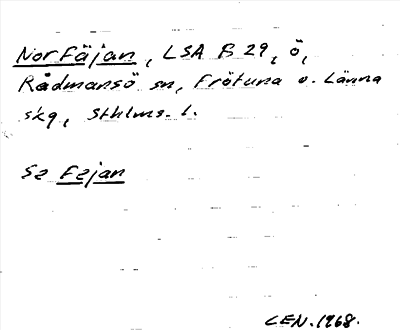 Norfäjan, LSA B 29, ö,
Rådmansö sn, Frötuna o. Länna
skg, Sthlms. l.
Se Fejan
CEN. 1968.